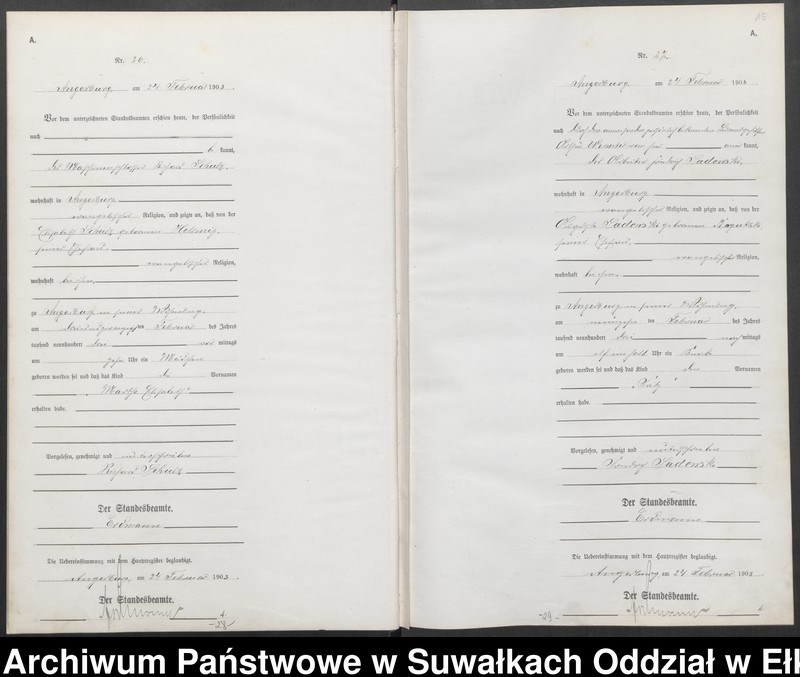 A.
Nr. 26.
Angerburg am 24 Februar 1903.
Vor dem unterzeichneten Standesbeamten erschien heute, der Persönlichkeit
nach
kannt,
der Maschinenschlosser Richard Schulz,
wohnhaft in Angerburg
evangelischer Religion, und zeigte an, daß von der
Elisabeth Schulz geborenen Hellwig,
seiner Ehefrau,
evangelischer Religion,
wohnhaft bei ihm,
zu Angerburg in seiner Wohnung,
am des Februar des Jahres
tausend neunhundert drei vor mittags
um zehn Uhr ein Mädchen
geboren worden sei und daß das Kind die Vornamen
Elisabeth
erhalten habe.
Vorgelesen, genehmigt und unterschrieben
Richard Schulz
Der Standesbeamte.
Erdmann
Die Uebereinstimmung mit dem Hauptregister beglaubigt.
Angerburg, am 24 Februar 1903.
Der Standesbeamte.
-28-
A.
Nr. 27.
Angerburg am 24 Februar 1903.
Vor dem unterzeichneten Standesbeamten erschien heute, der Persönlichkeit
nach
kannt,
der Arbeiter Sadowski,
wohnhaft in Angerburg
evangelischer Religion, und zeigte an, daß von der
Sadowski geborenen
seiner Ehefrau,
evangelischer Religion,
wohnhaft bei ihm,
zu Angerburg in seiner Wohnung,
am neunzehnten des Februar des Jahres
tausend neunhundert drei nach mittags
um elf einhalb Uhr ein Knabe
geboren worden sei und daß das Kind den Vornamen
erhalten habe.
Vorgelesen, genehmigt und unterschrieben
Sadowski
Der Standesbeamte.
Erdmann
Die Uebereinstimmung mit dem Hauptregister beglaubigt.
Angerburg am 24 Februar 1903
Der Standesbeamte.
-29-
Archiwum Państwowe w Suwałkach Oddział w Ełk